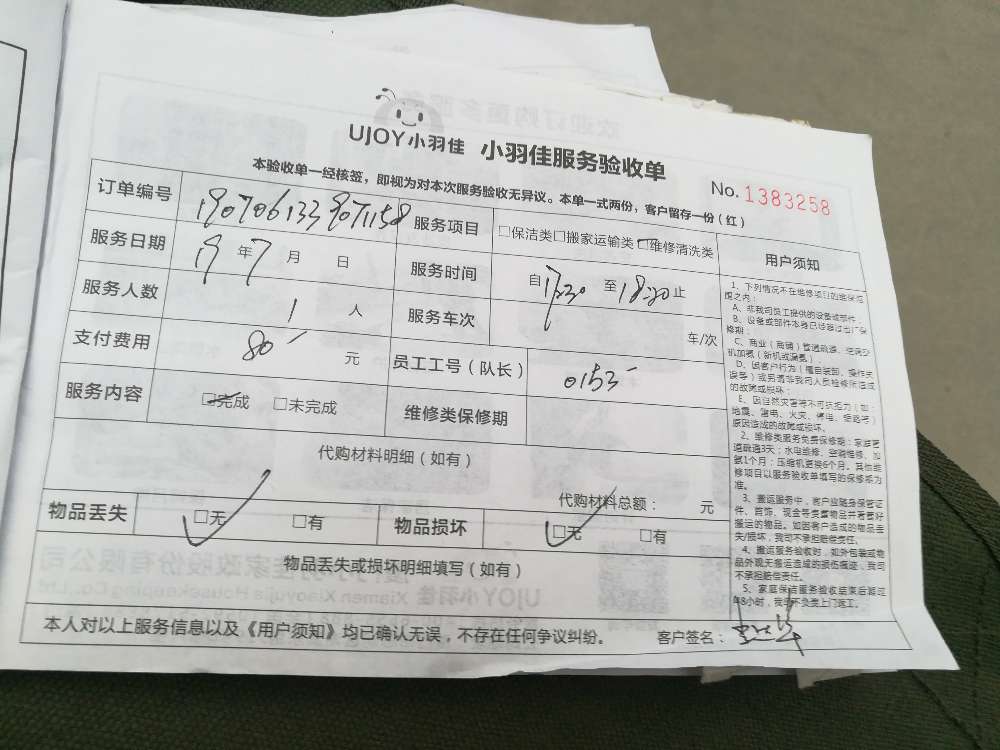 UJOY小羽佳 小羽佳服务验收单
No. 1383258
本验收单一经核签，即视为对本次服务验收无异议。本单一式两份，客户留存一份（红）
订单编号 1907061339071158 服务项目 □保洁类□搬家运输类□维修清洗类
服务日期 19年7月 日 服务时间 自17:30至18:30止
服务人数 1人 服务车次 车/次
支付费用 80元 员工工号（队长） 0153
服务内容 □完成 □未完成 维修类保修期
代购材料明细（如有）
代购材料总额： 元
物品丢失 □无 □有 物品损坏 □无 □有
物品丢失或损坏明细填写（如有）
本人对以上服务信息以及《用户须知》均已确认无误，不存在任何争议纠纷。 客户签名：
用户须知
1、下列情况不在维修项目的维保范
围之内：
A、非我司员工提供的设备或部件；
B、设备或部件本身已经超过出厂保
修期；
C、商业（商铺）管道疏通、空调移
机加氨（新机或漏氨）
D、因客户行为（擅自装卸、操作失
误等）或另请非我司人员检修所造成
的故障或损坏；
E、因自然灾害等不可抗拒力（如：
地震、雷电、火灾、停电、强电等）
原因造成的故障或损坏。
2、维修类服务免费保修期：家庭管
道疏通3天；水电维修、空调维修、加
氨1个月；压缩机更换6个月。其他维
修项目以服务验收单填写的保修期为
准。
3、搬运服务中，客户应随身保管证
件、首饰、现金等贵重物品并看管好
搬运的物品。如因客户造成的物品丢
失/损坏，我司不承担赔偿责任。
4、搬运服务验收时，如外包装或物
品外观无搬运造成的损伤痕迹，我司
不承担赔偿责任。
5、家庭保洁服务验收结束后超过
48小时，我司不负责上门返工。